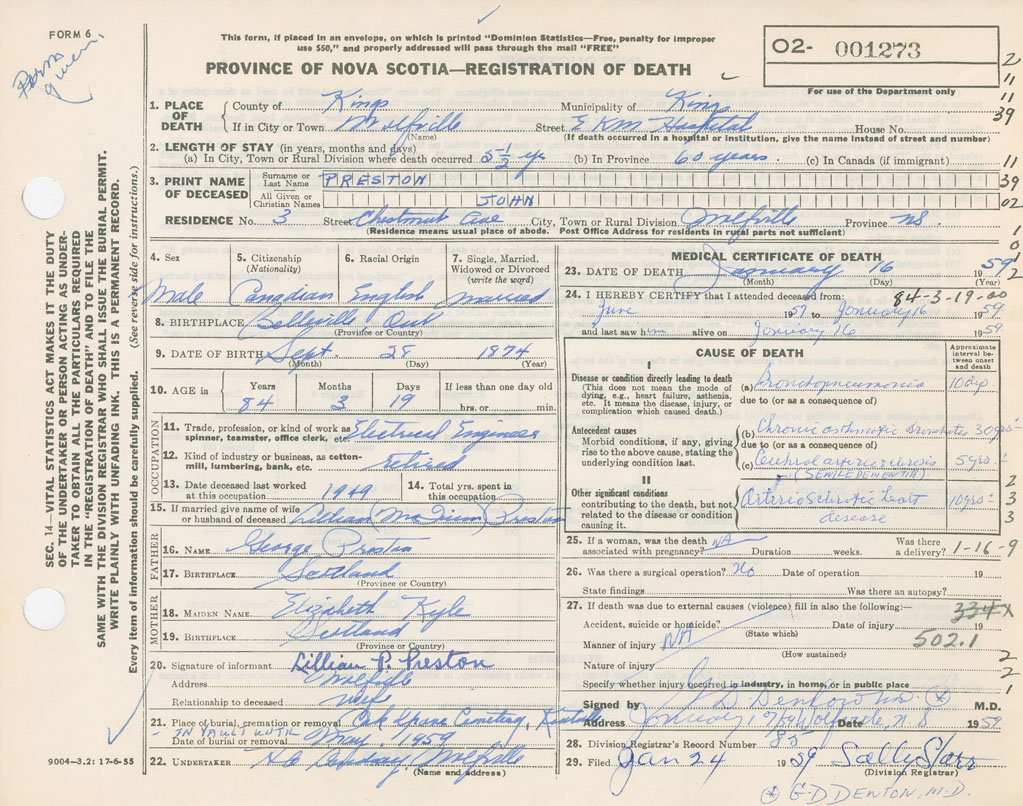 FORM 6
Perm
This form, if placed in an envelope, on which is printed "Dominion Statistics—Free, penalty for improper
use $50," and properly addressed will pass through the mail "FREE"
PROVINCE OF NOVA SCOTIA—REGISTRATION OF DEATH
02- 001273
For use of the Department only
2
11
11
39
11
39
02
1
0
1
2
SEC. 14—VITAL STATISTICS ACT MAKES IT THE DUTY
OF THE UNDERTAKER OR PERSON ACTING AS UNDER-
TAKER TO OBTAIN ALL THE PARTICULARS REQUIRED
IN THE "REGISTRATION OF DEATH" AND TO FILE THE
SAME WITH THE DIVISION REGISTRAR WHO SHALL ISSUE THE BURIAL PERMIT.
WRITE PLAINLY WITH UNFADING INK. THIS IS A PERMANENT RECORD.
Every item of information should be carefully supplied. (See reverse side for instructions.)
1. PLACE OF DEATH County of Kings Municipality of Kings
If in City or Town Wolfville Street E K M Hospital House No.
(Name) (If death occurred in a hospital or institution, give the name instead of street and number)
2. LENGTH OF STAY (in years, months and days)
(a) In City, Town or Rural Division where death occurred 5 1/2 yrs (b) In Province 60 years. (c) In Canada (if immigrant)
3. PRINT NAME OF DECEASED Surname or Last Name PRESTON
All Given or Christian Names JOHN
RESIDENCE No. 3 Street Chestnut Ave City, Town or Rural Division Wolfville Province NS
(Residence means usual place of abode. Post Office Address for residents in rural parts not sufficient)
4. Sex Male
5. Citizenship (Nationality) Canadian
6. Racial Origin English
7. Single, Married, Widowed or Divorced (write the word) married
8. BIRTHPLACE Belleville Ont
(Province or Country)
9. DATE OF BIRTH Sept. 28 1874
(Month) (Day) (Year)
10. AGE in Years Months Days If less than one day old
84 3 19 hrs. or min.
OCCUPATION
11. Trade, profession, or kind of work as spinner, teamster, office clerk, etc. Electrical Engineer
12. Kind of industry or business, as cotton-mill, lumbering, bank, etc. retired
13. Date deceased last worked at this occupation 1949 14. Total yrs. spent in this occupation
15. If married give name of wife or husband of deceased Preston
FATHER
16. NAME George Preston
17. BIRTHPLACE Scotland
(Province or Country)
MOTHER
18. MAIDEN NAME Elizabeth Kyle
19. BIRTHPLACE Scotland
(Province or Country)
20. Signature of informant Lillian P. Preston
Address Wolfville
Relationship to deceased wife
21. Place of burial, cremation or removal Oak Grove Cemetery, Kentville
IN VAULT UNTIL
Date of burial or removal May, 1959
22. UNDERTAKER Wolfville
(Name and address)
9004—3.2: 17-6-55
MEDICAL CERTIFICATE OF DEATH
23. DATE OF DEATH January 16 1959
(Month) (Day) (Year)
84-3-19-00
24. I HEREBY CERTIFY that I attended deceased from:
June 1957 to January 16 1959
and last saw him alive on January 16 1959
CAUSE OF DEATH
Approximate interval between onset and death
I
Disease or condition directly leading to death
(This does not mean the mode of dying, e.g., heart failure, asthenia, etc. It means the disease, injury, or complication which caused death.)
(a) Bronchopneumonia 10 days
due to (or as a consequence of)
Antecedent causes
Morbid conditions, if any, giving rise to the above cause, stating the underlying condition last.
(b) Chronic asthmatic Bronchitis 30 yrs
due to (or as a consequence of)
(c) Cerebral arteriosclerosis 5 yrs
(SENILE DEMENTIA)
II
Other significant conditions contributing to the death, but not related to the disease or condition causing it.
Arteriosclerotic heart disease 10 yrs
2
3
2
3
3
25. If a woman, was the death associated with pregnancy? NA Duration weeks. Was there a delivery? 1-16-9
26. Was there a surgical operation? No Date of operation 19
State findings Was there an autopsy?
27. If death was due to external causes (violence) fill in also the following:—
334X
Accident, suicide or homicide? Date of injury 19
(State which)
502.1
Manner of injury NA
(How sustained)
Nature of injury
Specify whether injury occurred in industry, in home, or in public place
2
2
1
Signed by G D Denton M.D.
Address January 17/59 Wolfville, N.S Date 1959
28. Division Registrar's Record Number 85
29. Filed Jan 24 1959 Sally Starr
(Division Registrar)
G-D DENTON, M-D.